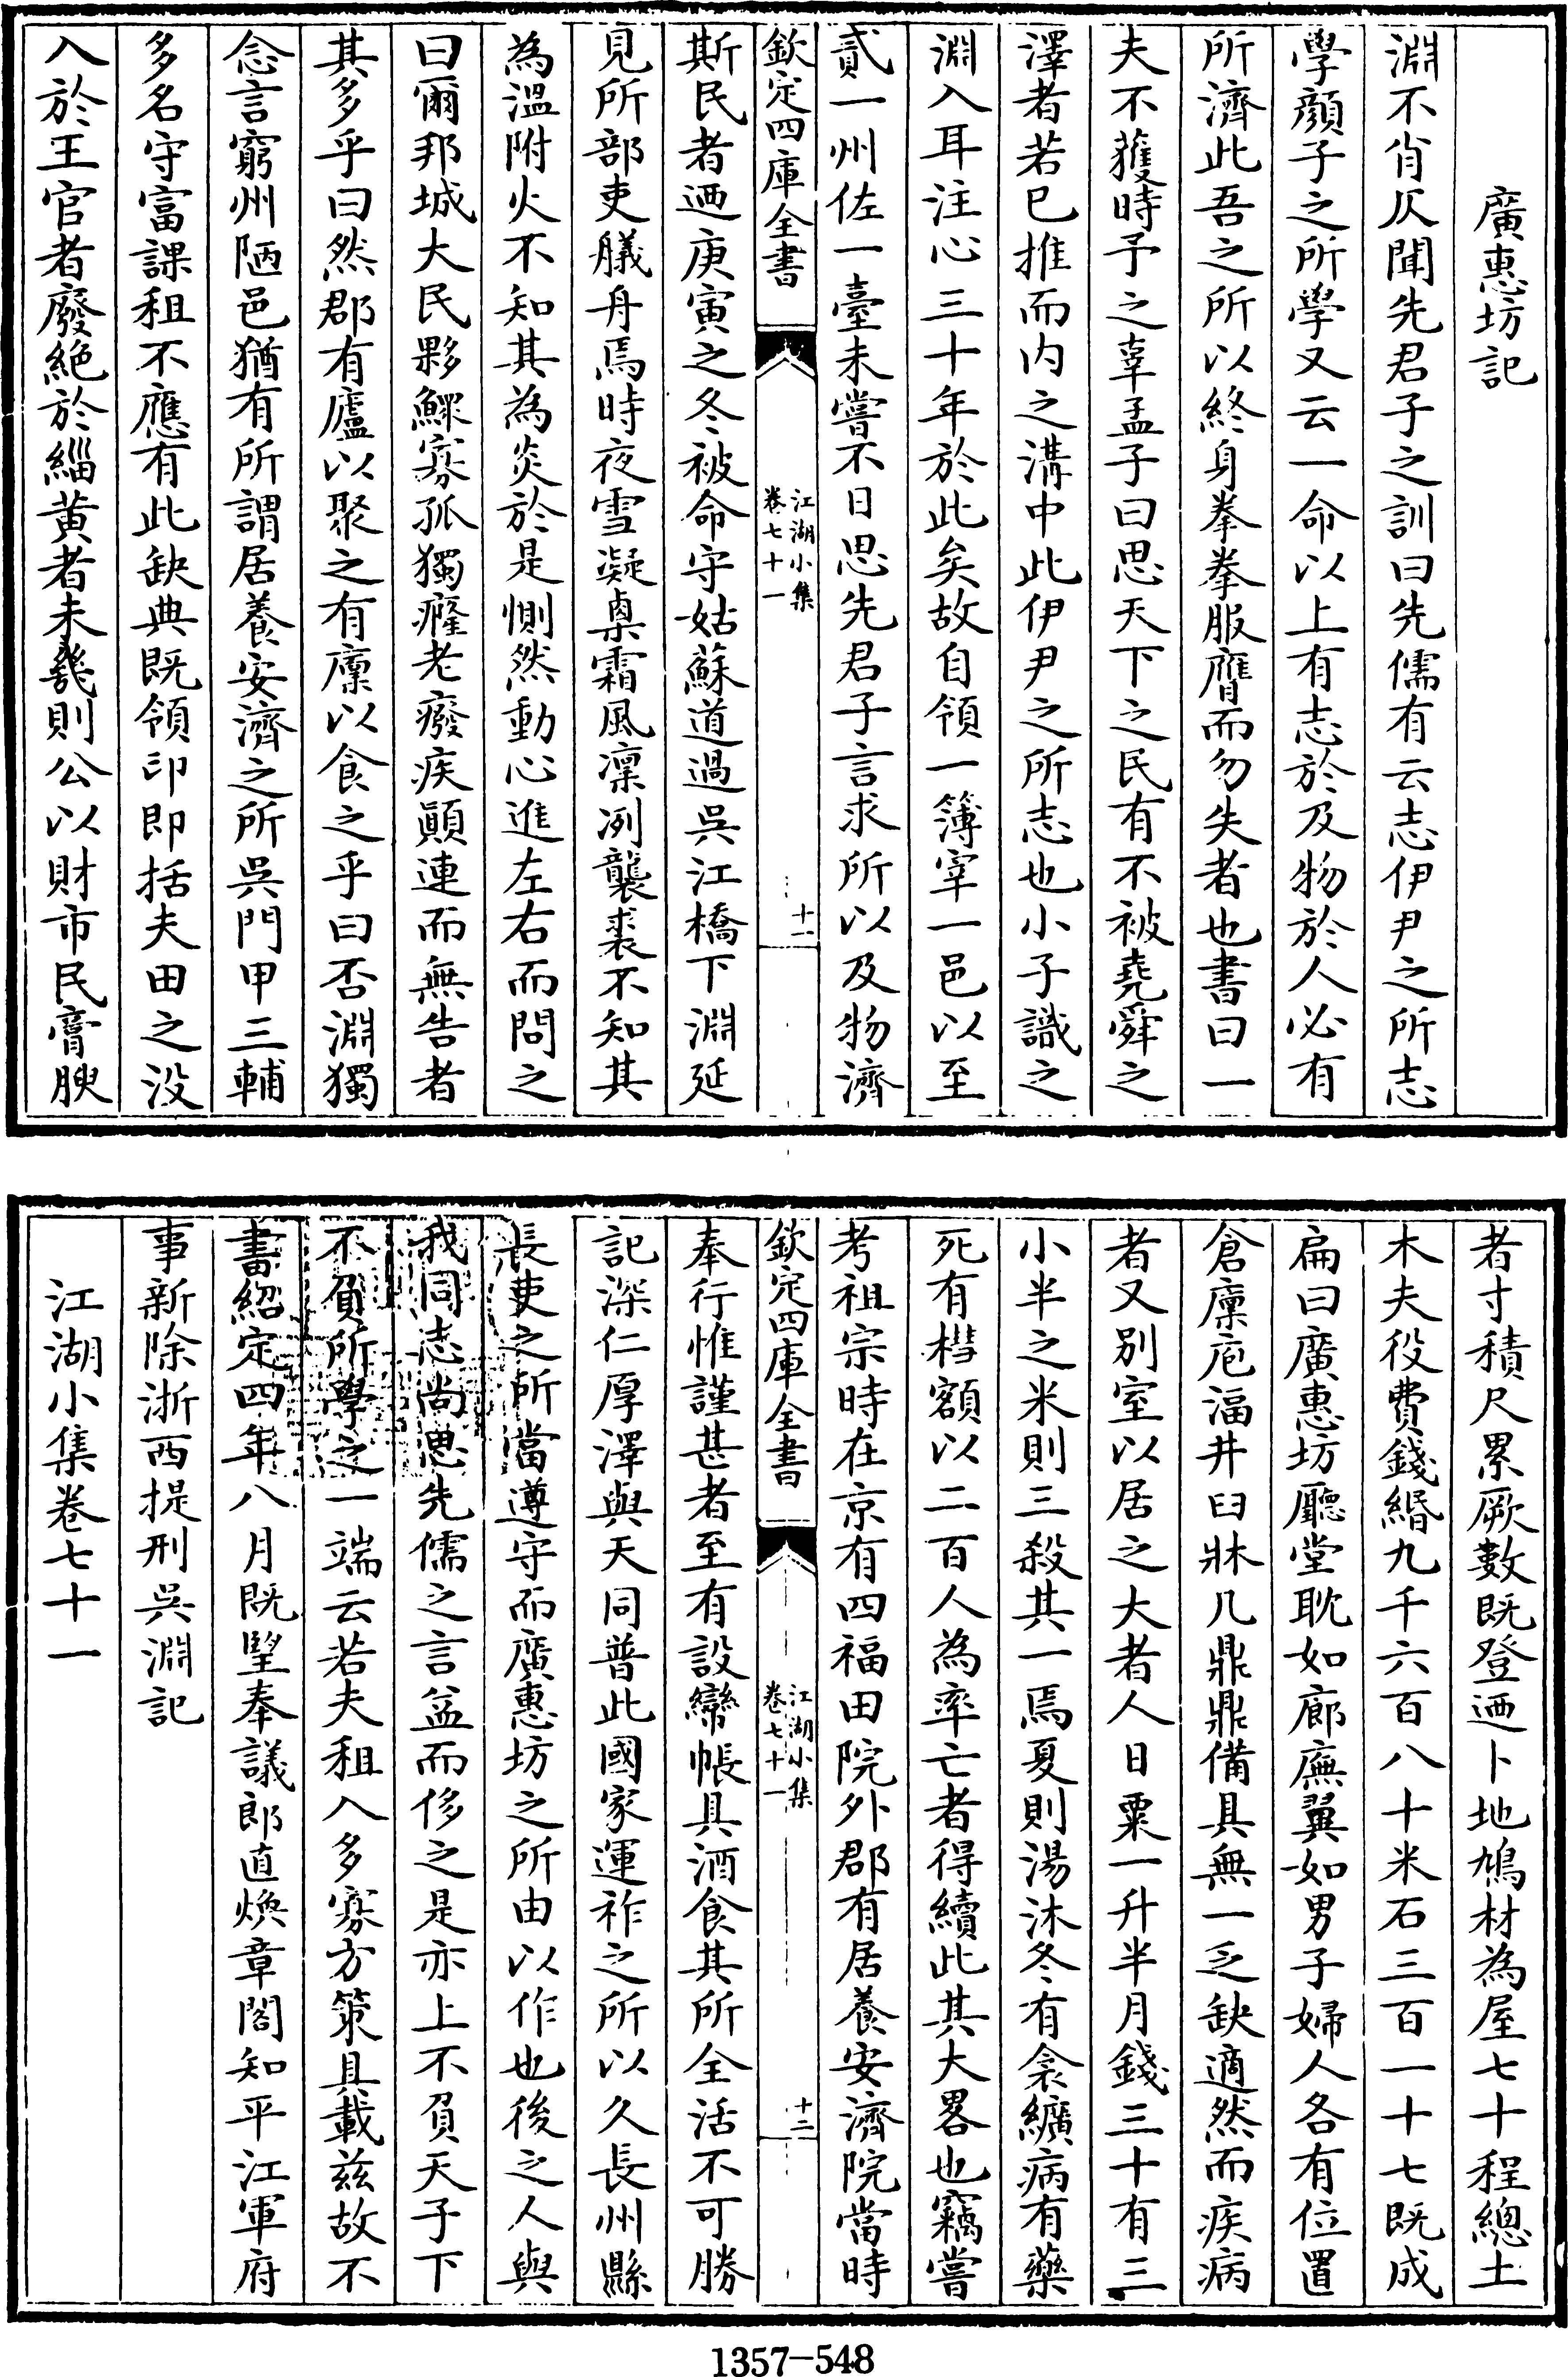 廣惠坊記
淵不肖仄聞先君子之訓曰先儒有云志伊尹之所志
學顔子之所學又云一命以上有志於及物於人必有
所濟此吾之所以終身拳拳服膺而勿失者也書曰一
夫不獲時予之辜孟子曰思天下之民有不被堯舜之
澤者若已推而内之溝中此伊尹之所志也小子識之
淵入耳注心三十年於此矣故自領一簿宰一邑以至
貳一州佐一臺未嘗不日思先君子言求所以及物濟
欽定四庫全書
江湖小集
卷七十一
十一
斯民者迺庚寅之冬被命守姑蘇道過吳江橋下淵延
見所部吏艤舟焉時夜雪凝㮚霜風凜冽襲裘不知其
為溫附火不知其為炎於是惻然動心進左右而問之
曰爾邦城大民夥鰥寡孤獨癃老癈疾顚連而無告者
其多乎曰然郡有廬以聚之有廩以食之乎曰否淵獨
念言窮州陋邑猶有所謂居養安濟之所吳門甲三輔
多名守富課租不應有此缺典既領印即括夫田之没
入於王官者廢絶於緇黄者未㡬則公以財市民膏腴
者寸積尺累厥數既登迺卜地鳩材為屋七十程總土
木夫役費錢緡九千六百八十米石三百一十七既成
扁曰廣惠坊廳堂耽如廊廡翼如男子婦人各有位置
倉廩庖湢井臼牀几鼎鼎備具無一乏缺適然而疾病
者又别室以居之大者人日粟一升半月錢三十有三
小半之米則三殺其一焉夏則湯沐冬有衾纊病有藥
死有槥額以二百人為率亡者得續此其大畧也竊嘗
考祖宗時在京有四福田院外郡有居養安濟院當時
欽定四庫全書
江湖小集
卷七十一
十二
奉行惟謹甚者至有設䌫帳具酒食其所全活不可勝
記深仁厚澤與天同普此國家運祚之所以久長州縣
長吏之所當遵守而廣惠坊之所由以作也後之人與
我同志尚思先儒之言益而侈之是亦上不負天子下
不負所學之一端云若夫租入多寡方策具載兹故不
書紹定四年八月既望奉議郎直煥章閣知平江軍府
事新除浙西提刑吳淵記
江湖小集卷七十一
1357—548